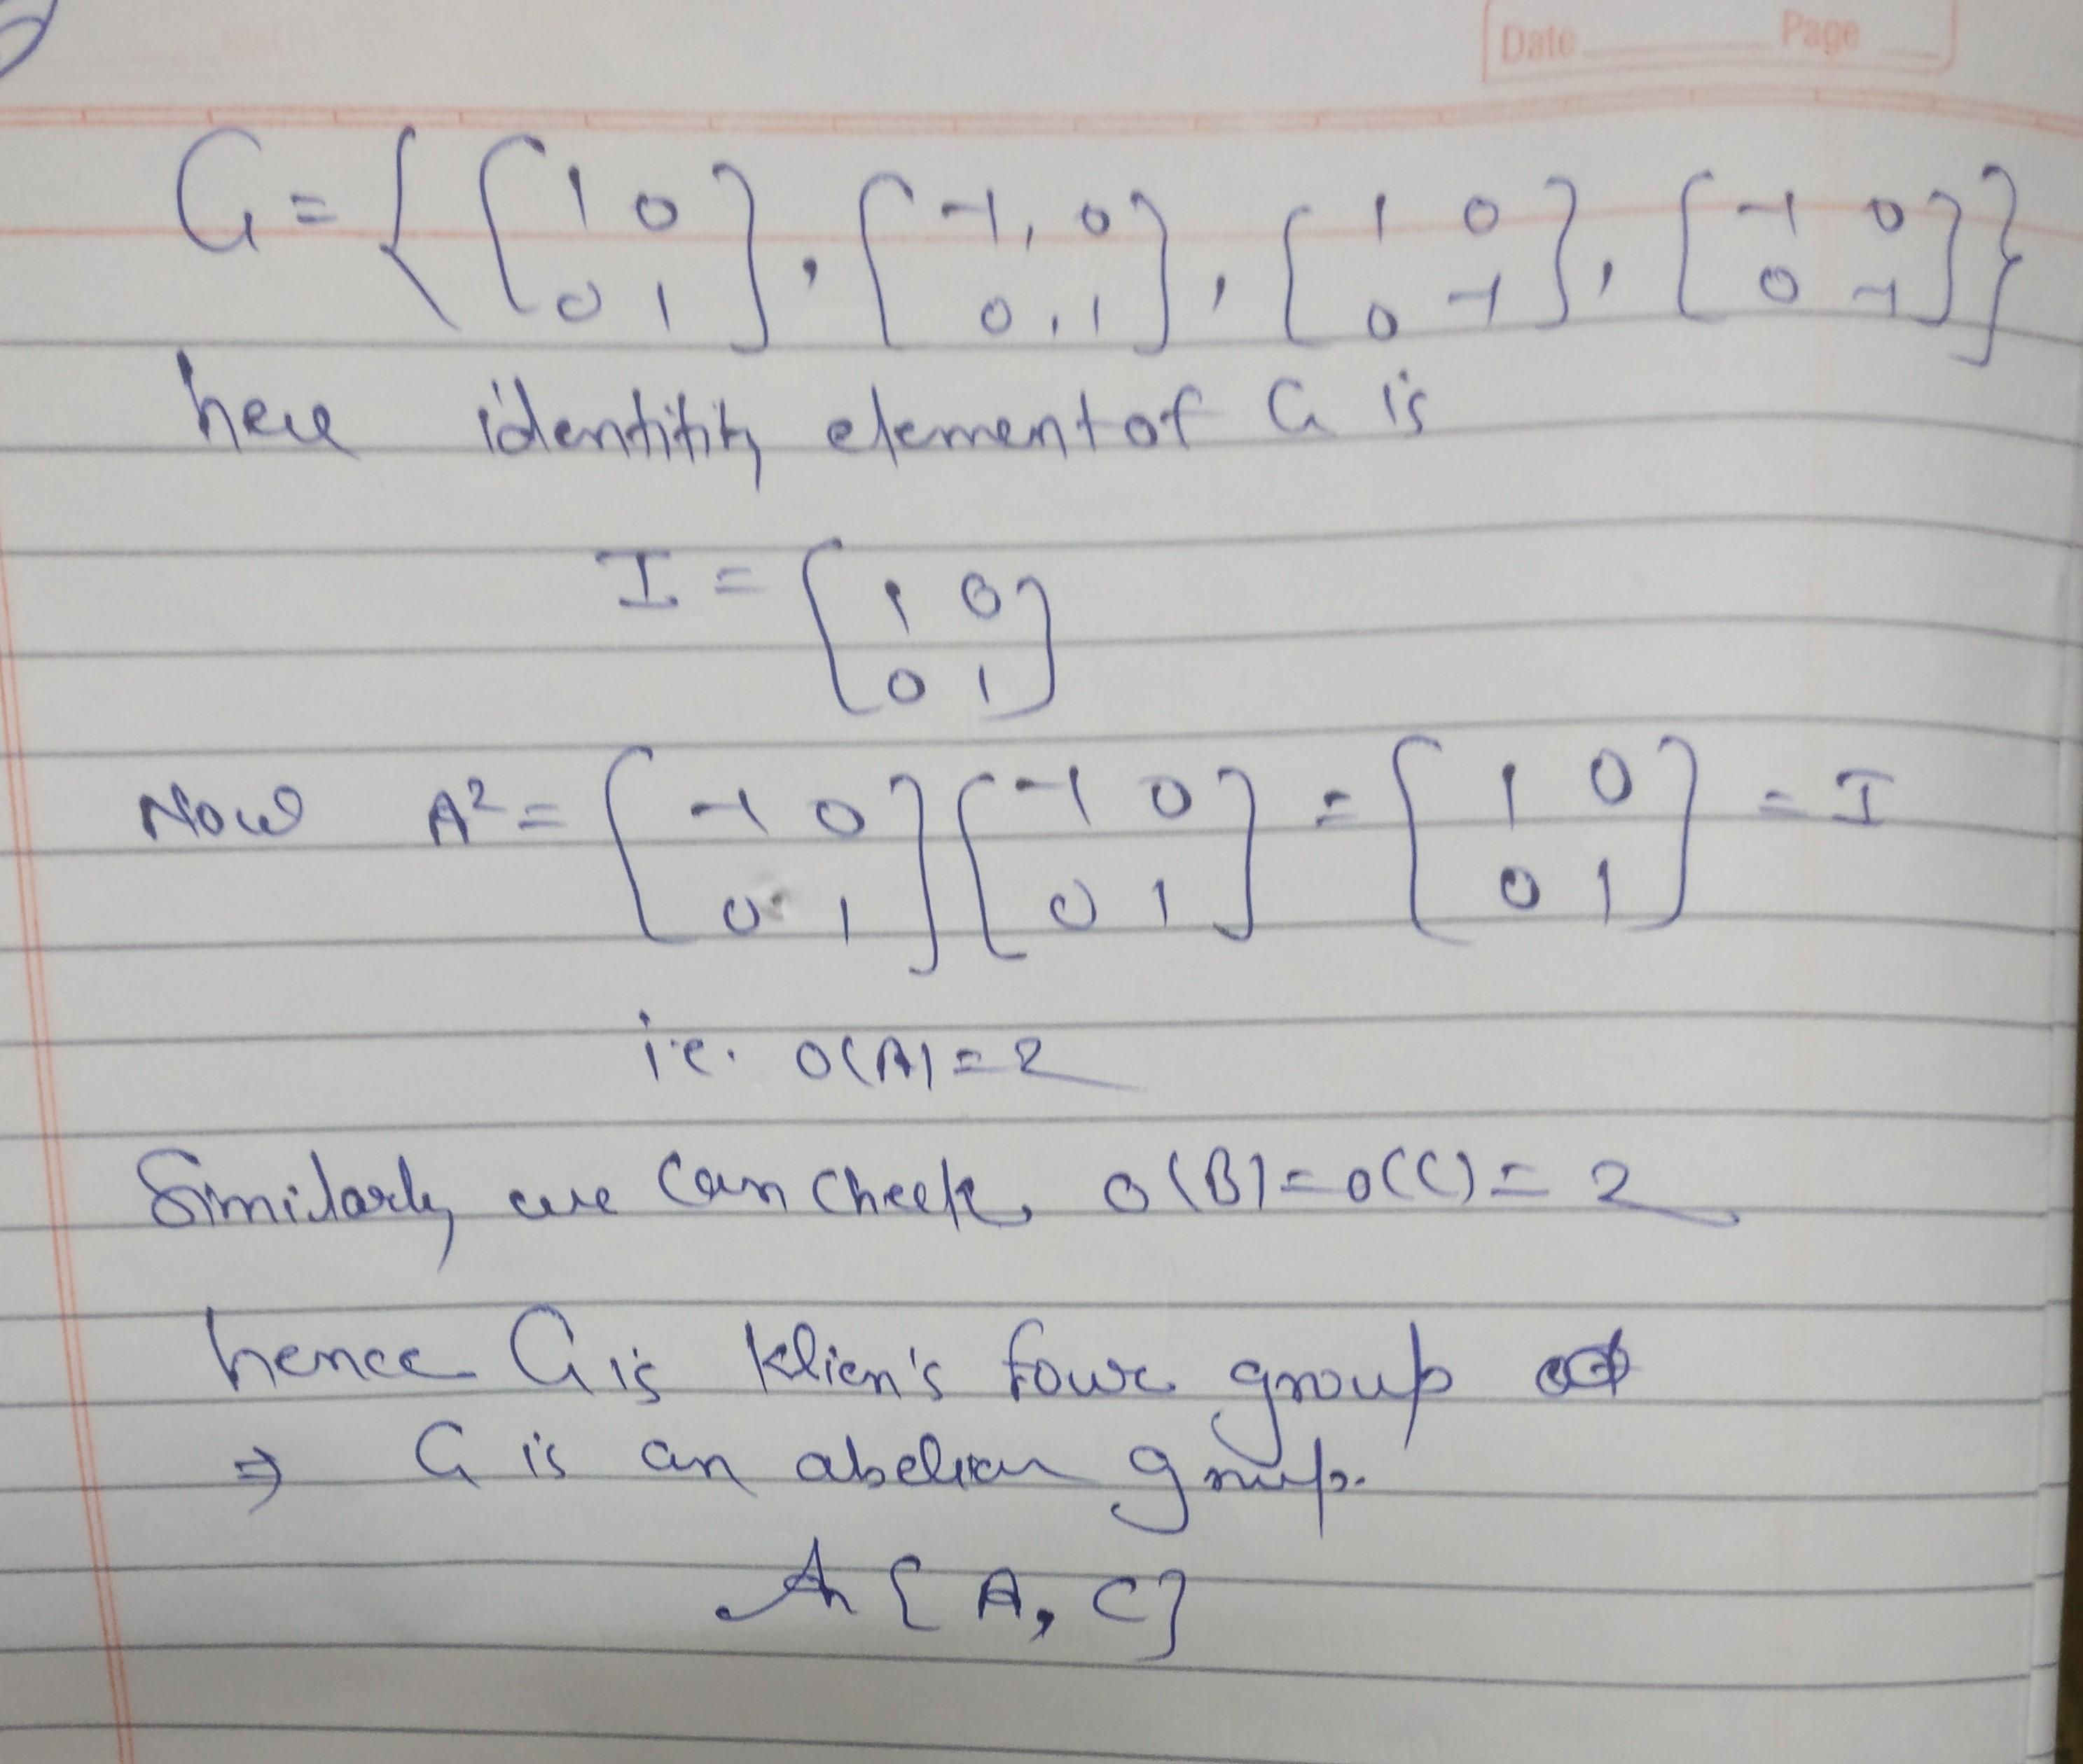 Date Page
G = { [ 1 0 ; 0 1 ], [ -1, 0 ; 0, 1 ], [ 1 0 ; 0 -1 ], [ -1 0 ; 0 -1 ] }
here identitity element of G is
I = [ 1 0 ; 0 1 ]
Now A² = [ -1 0 ; 0 1 ] [ -1 0 ; 0 1 ] = [ 1 0 ; 0 1 ] = I
i.e. o(A) = 2
Similarly we can check, o(B) = o(C) = 2
hence G is Klien's four group
⇒ G is an abelian group.
{ A, C }